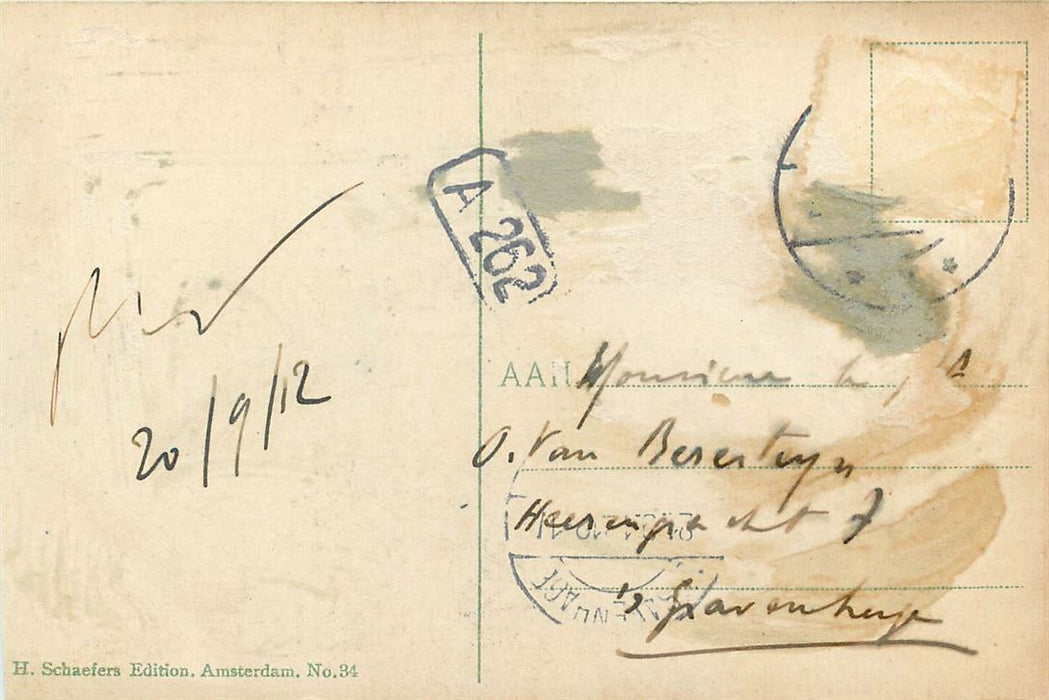 20/9/12
A 262
AAN Monsieur
O. Van Beresteyn
Heerengracht 7
's Gravenhage
H. Schaefers Edition. Amsterdam. No. 34